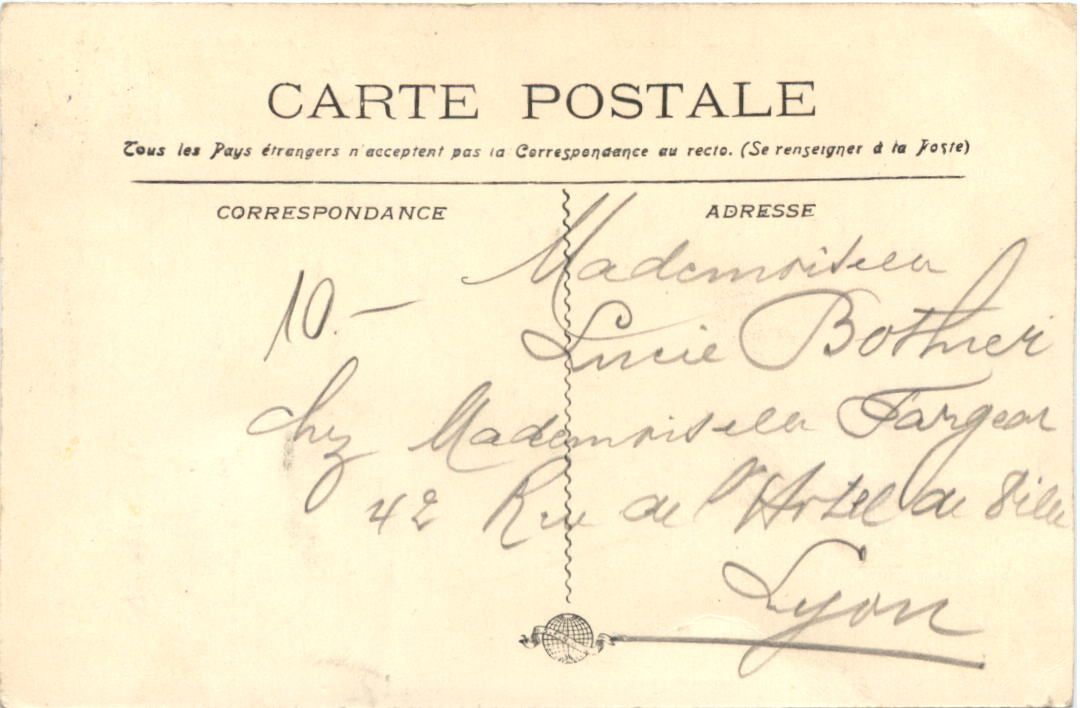 CARTE POSTALE
Tous les Pays étrangers n'acceptent pas la Correspondance au recto. (Se renseigner à la Poste)
CORRESPONDANCE
ADRESSE
10.-
Mademoiselle
Lucie Bothner
chez Mademoiselle Fargeot
42 Rue de l'Hotel de Ville
Lyon